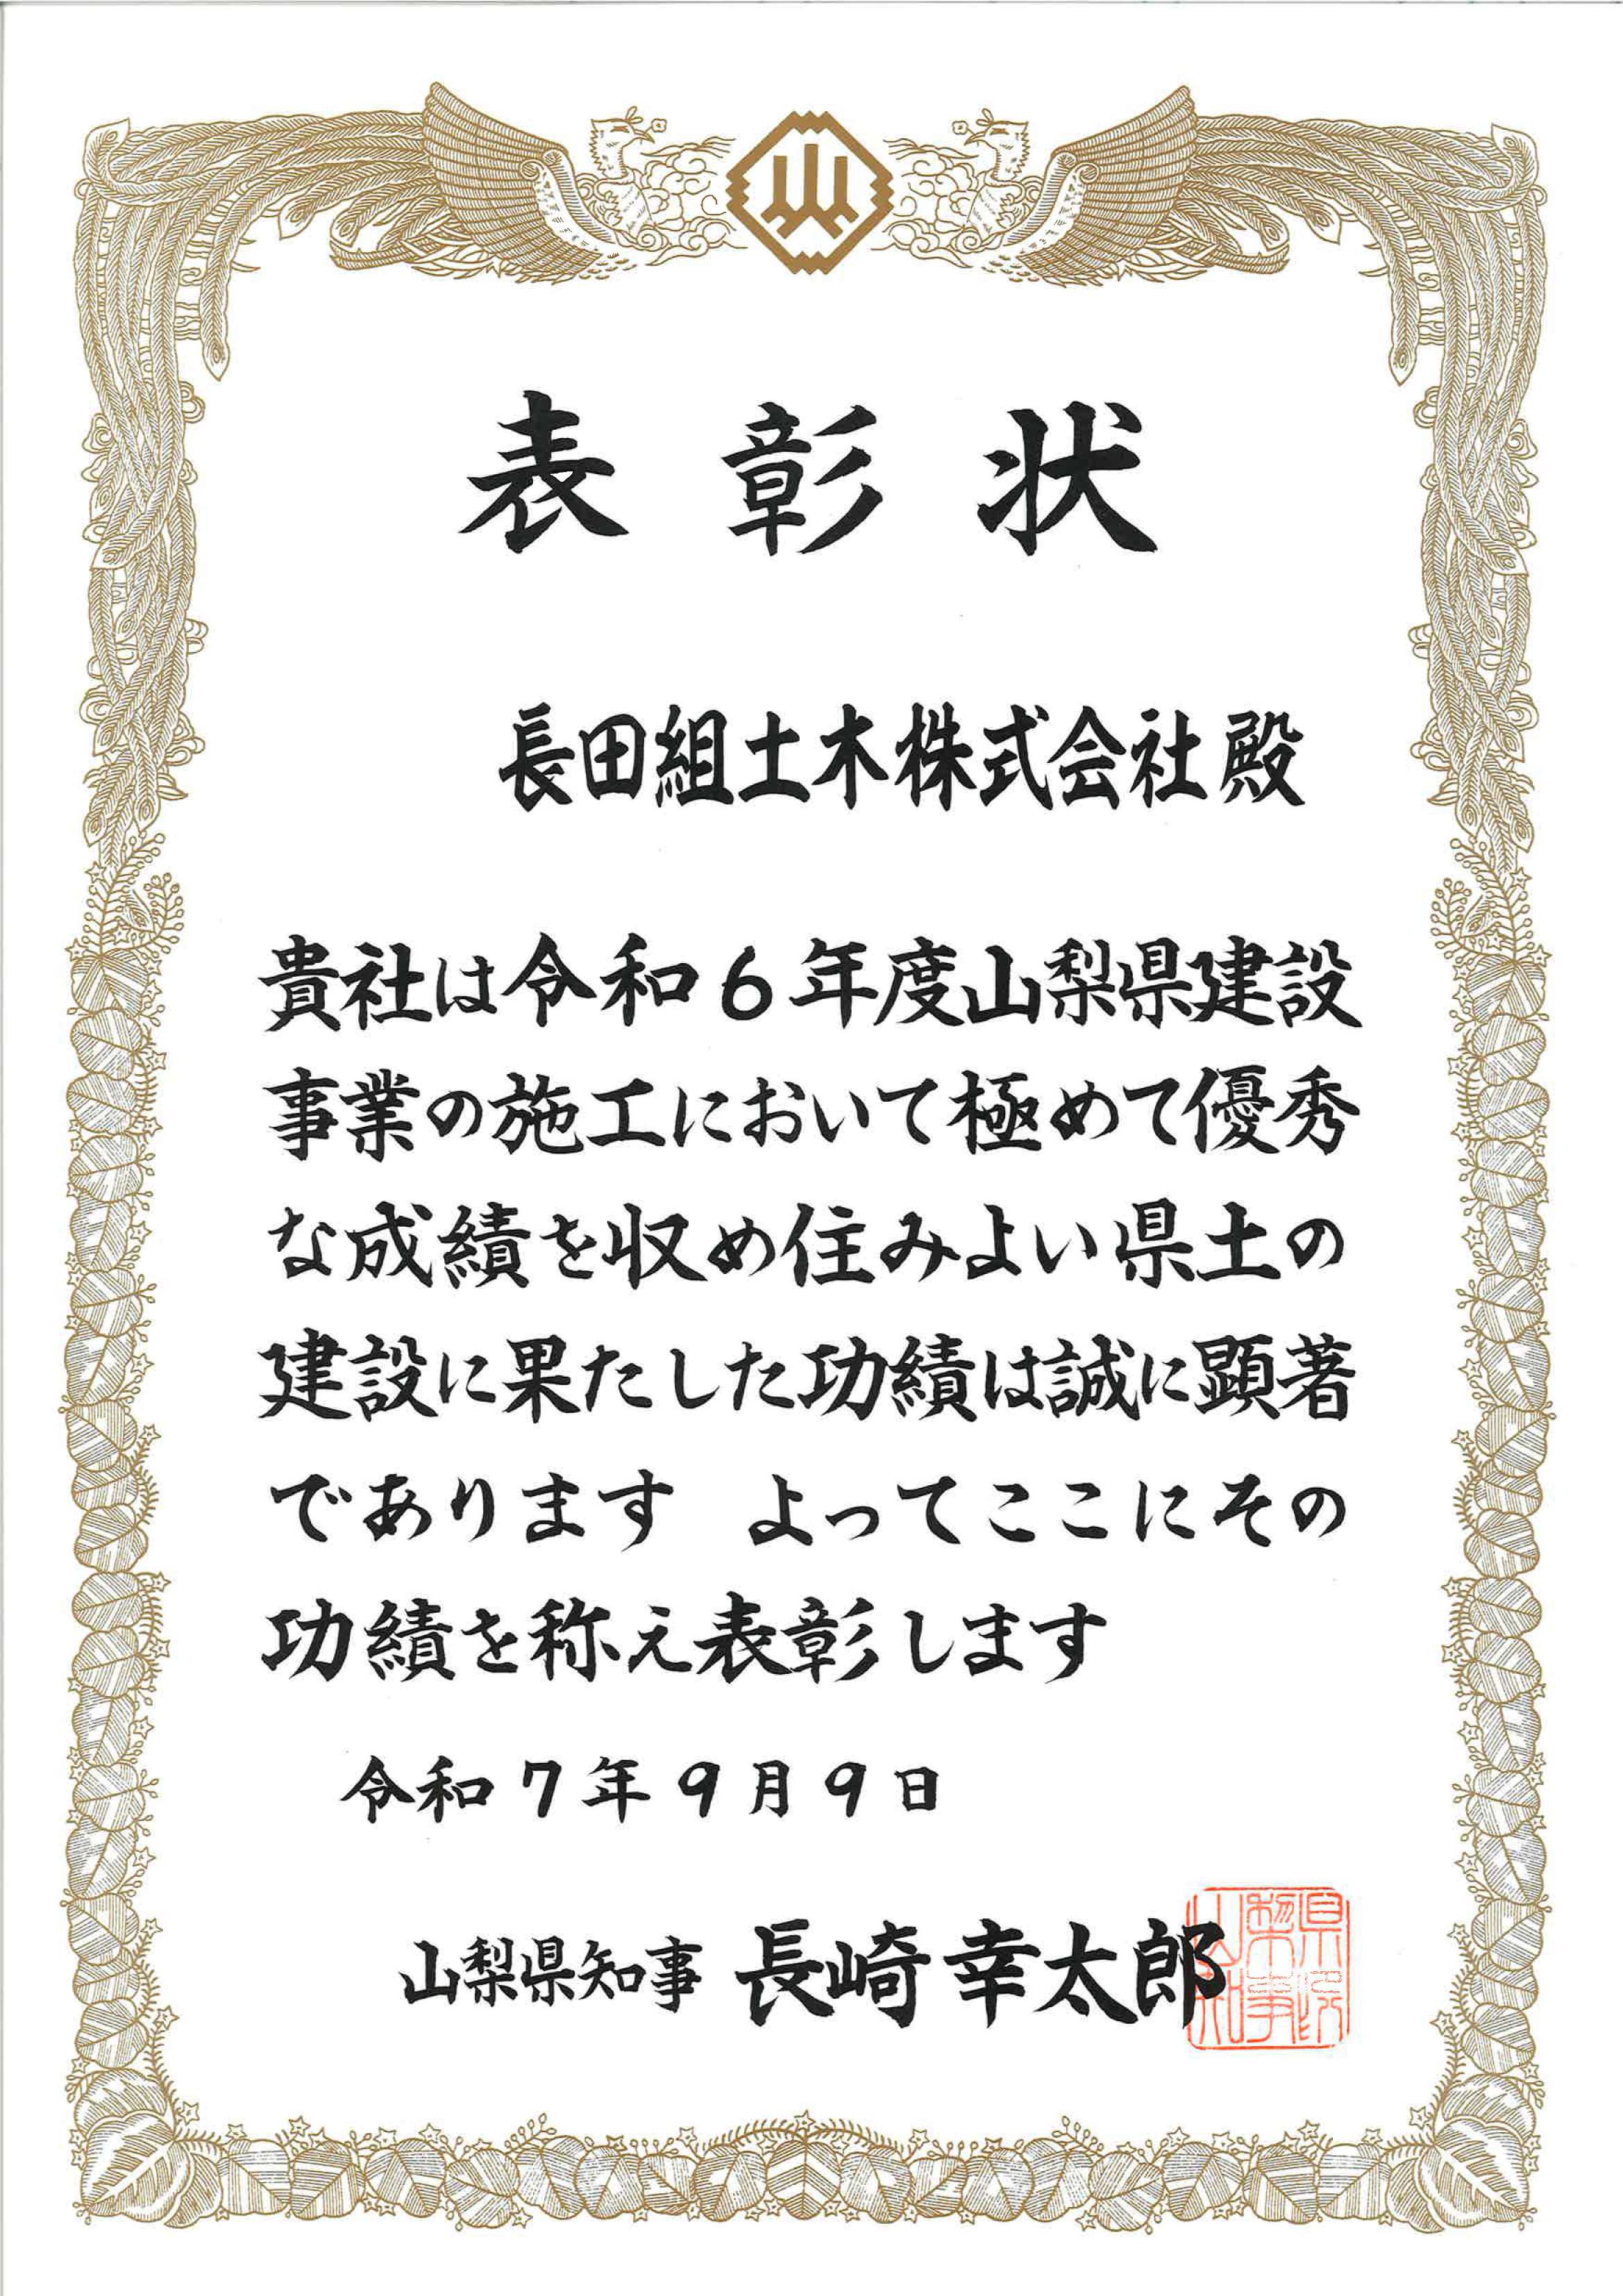 表彰状
長田組土木株式会社殿
貴社は令和6年度山梨県建設
事業の施工において極めて優秀
な成績を収め住みよい県土の
建設に果たした功績は誠に顕著
であります　よってここにその
功績を称え表彰します
令和7年9月9日
山梨県知事 長崎幸太郎